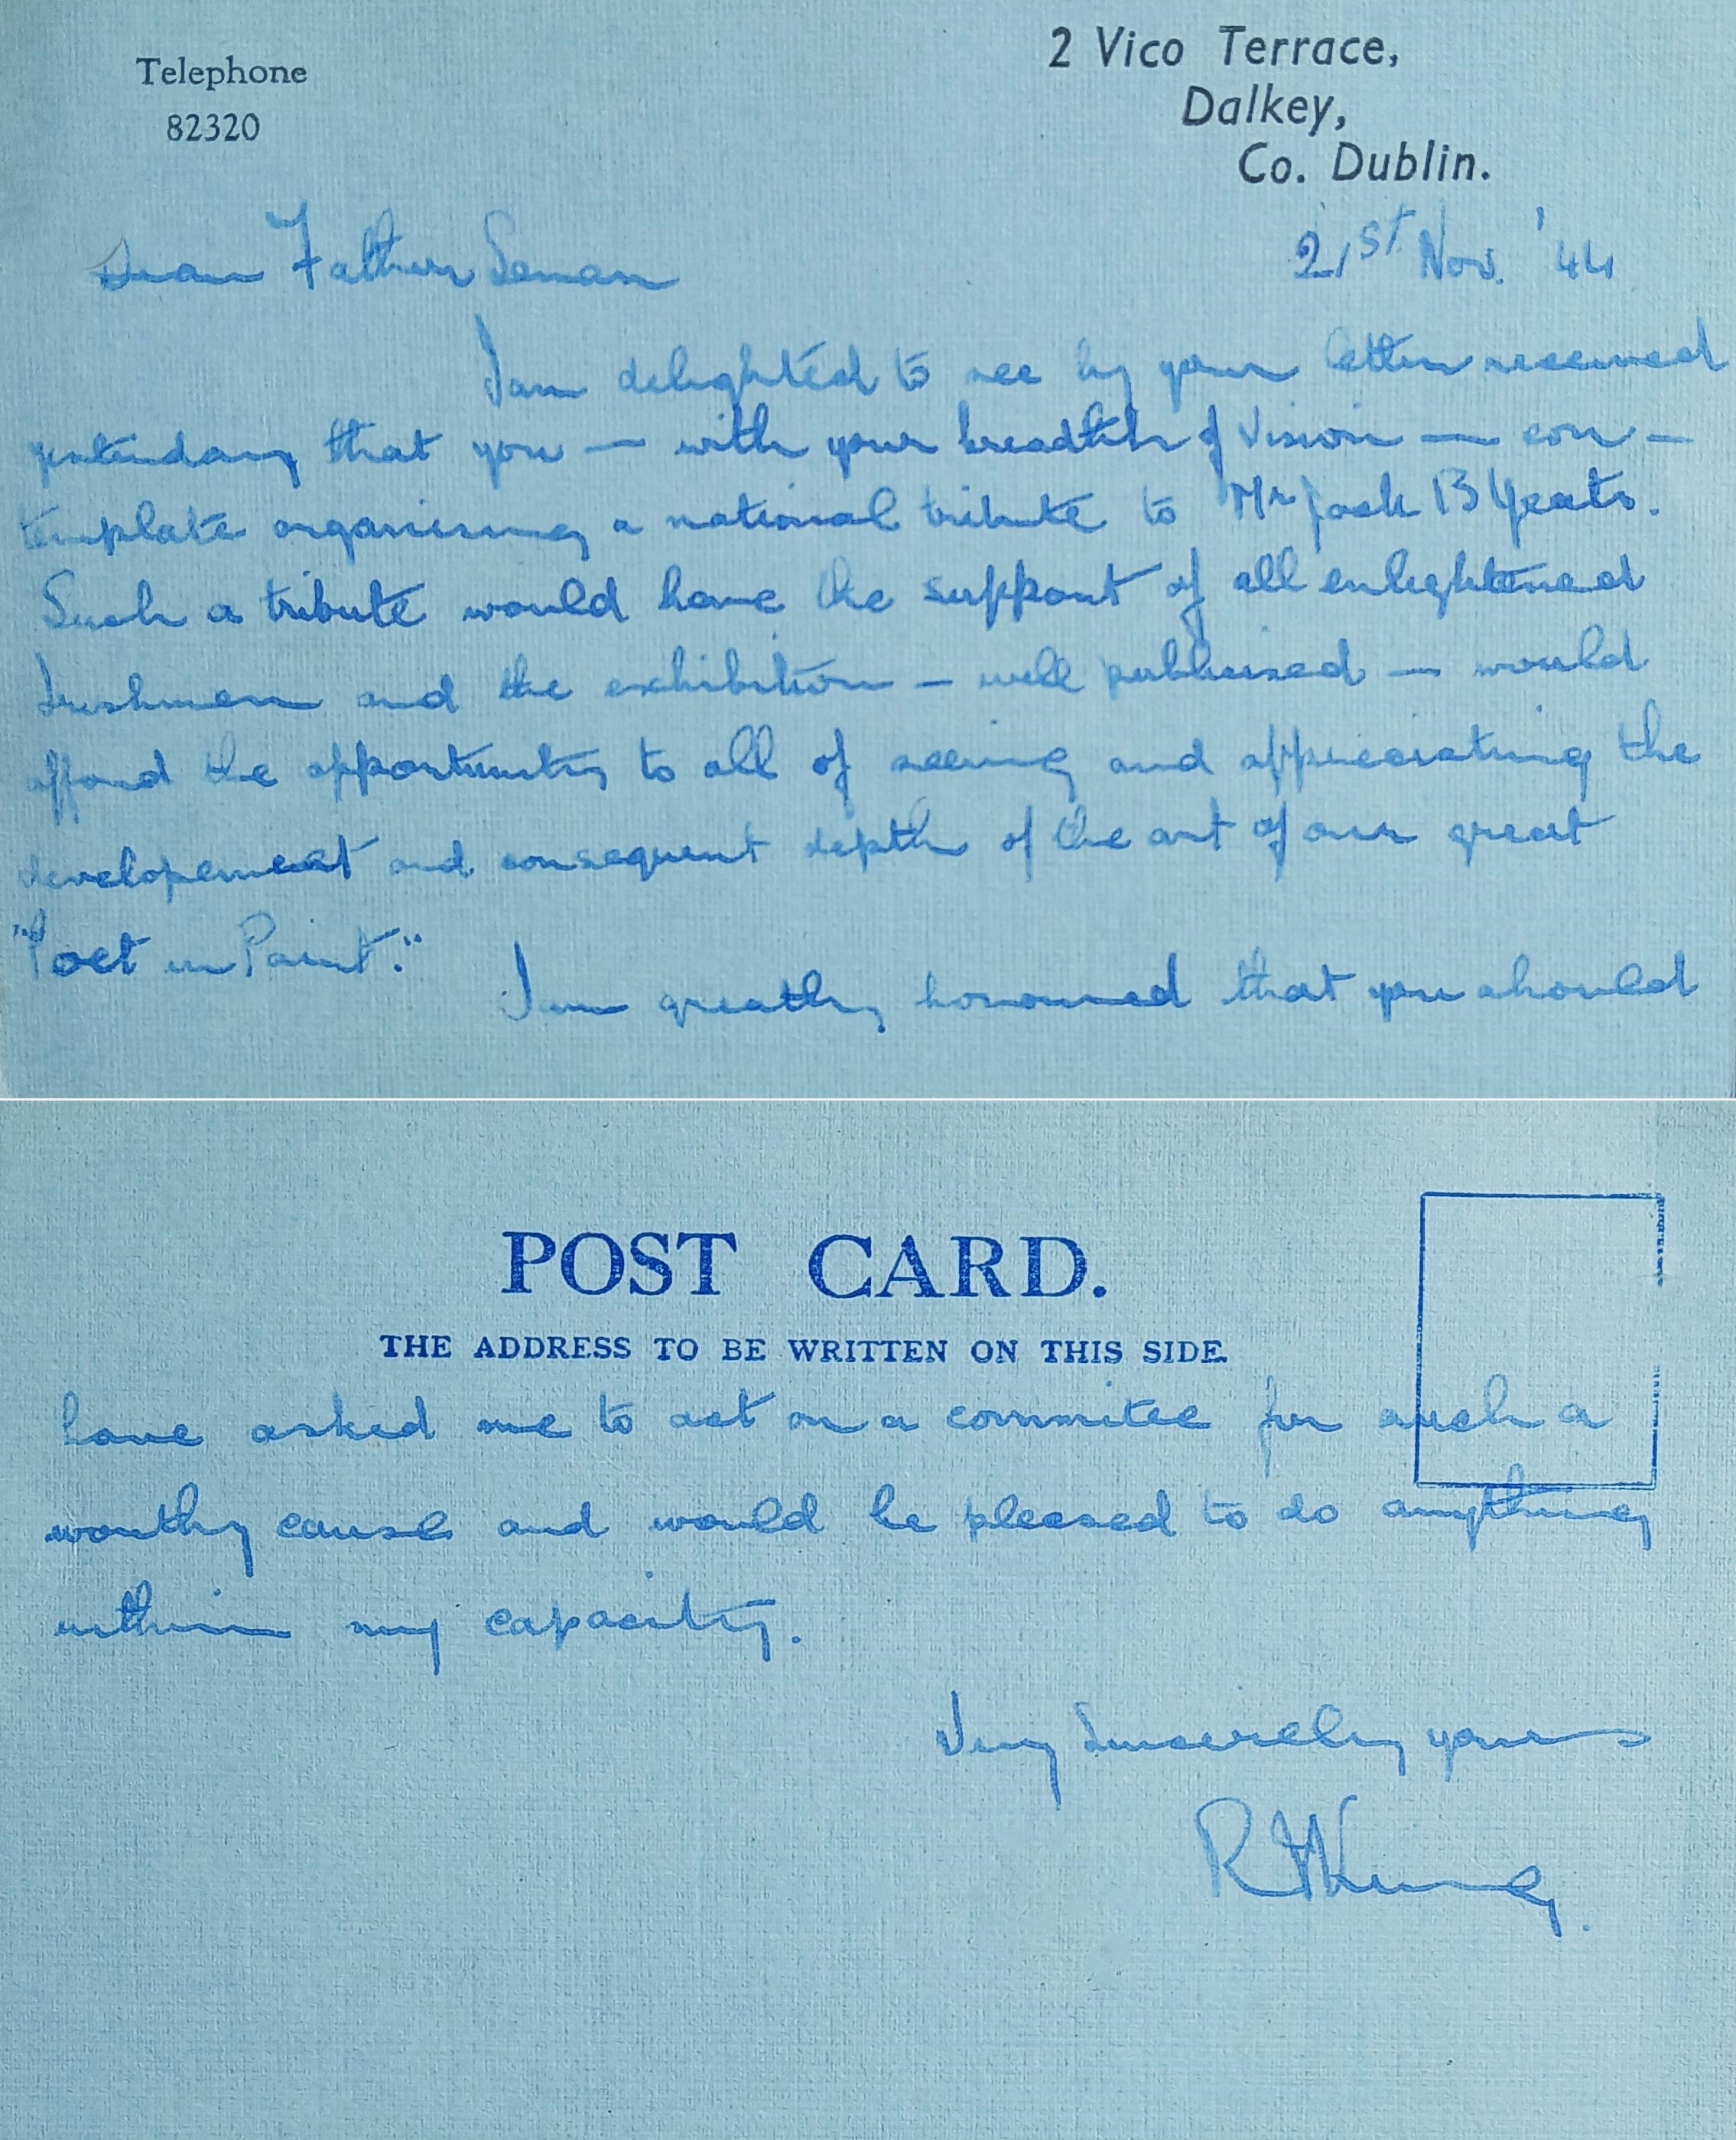 Telephone
82320
2 Vico Terrace,
Dalkey,
Co. Dublin.
21st Nov. '44
Dear Father Senan
I am delighted to see by your letter received
yesterday that you — with your breadth of vision — con-
template organising a national tribute to Mr Jack B Yeats.
Such a tribute would have the support of all enlightened
Irishmen and the exhibition — well publicised — would
afford the opportunity to all of seeing and appreciating the
developement and consequent depth of the art of our great
"Poet in Paint."
I am greatly honoured that you should
POST CARD.
THE ADDRESS TO BE WRITTEN ON THIS SIDE
have asked me to act on a commitee for such a
worthy cause and would be pleased to do anything
within my capacity.
Very Sincerely yours
R H King.